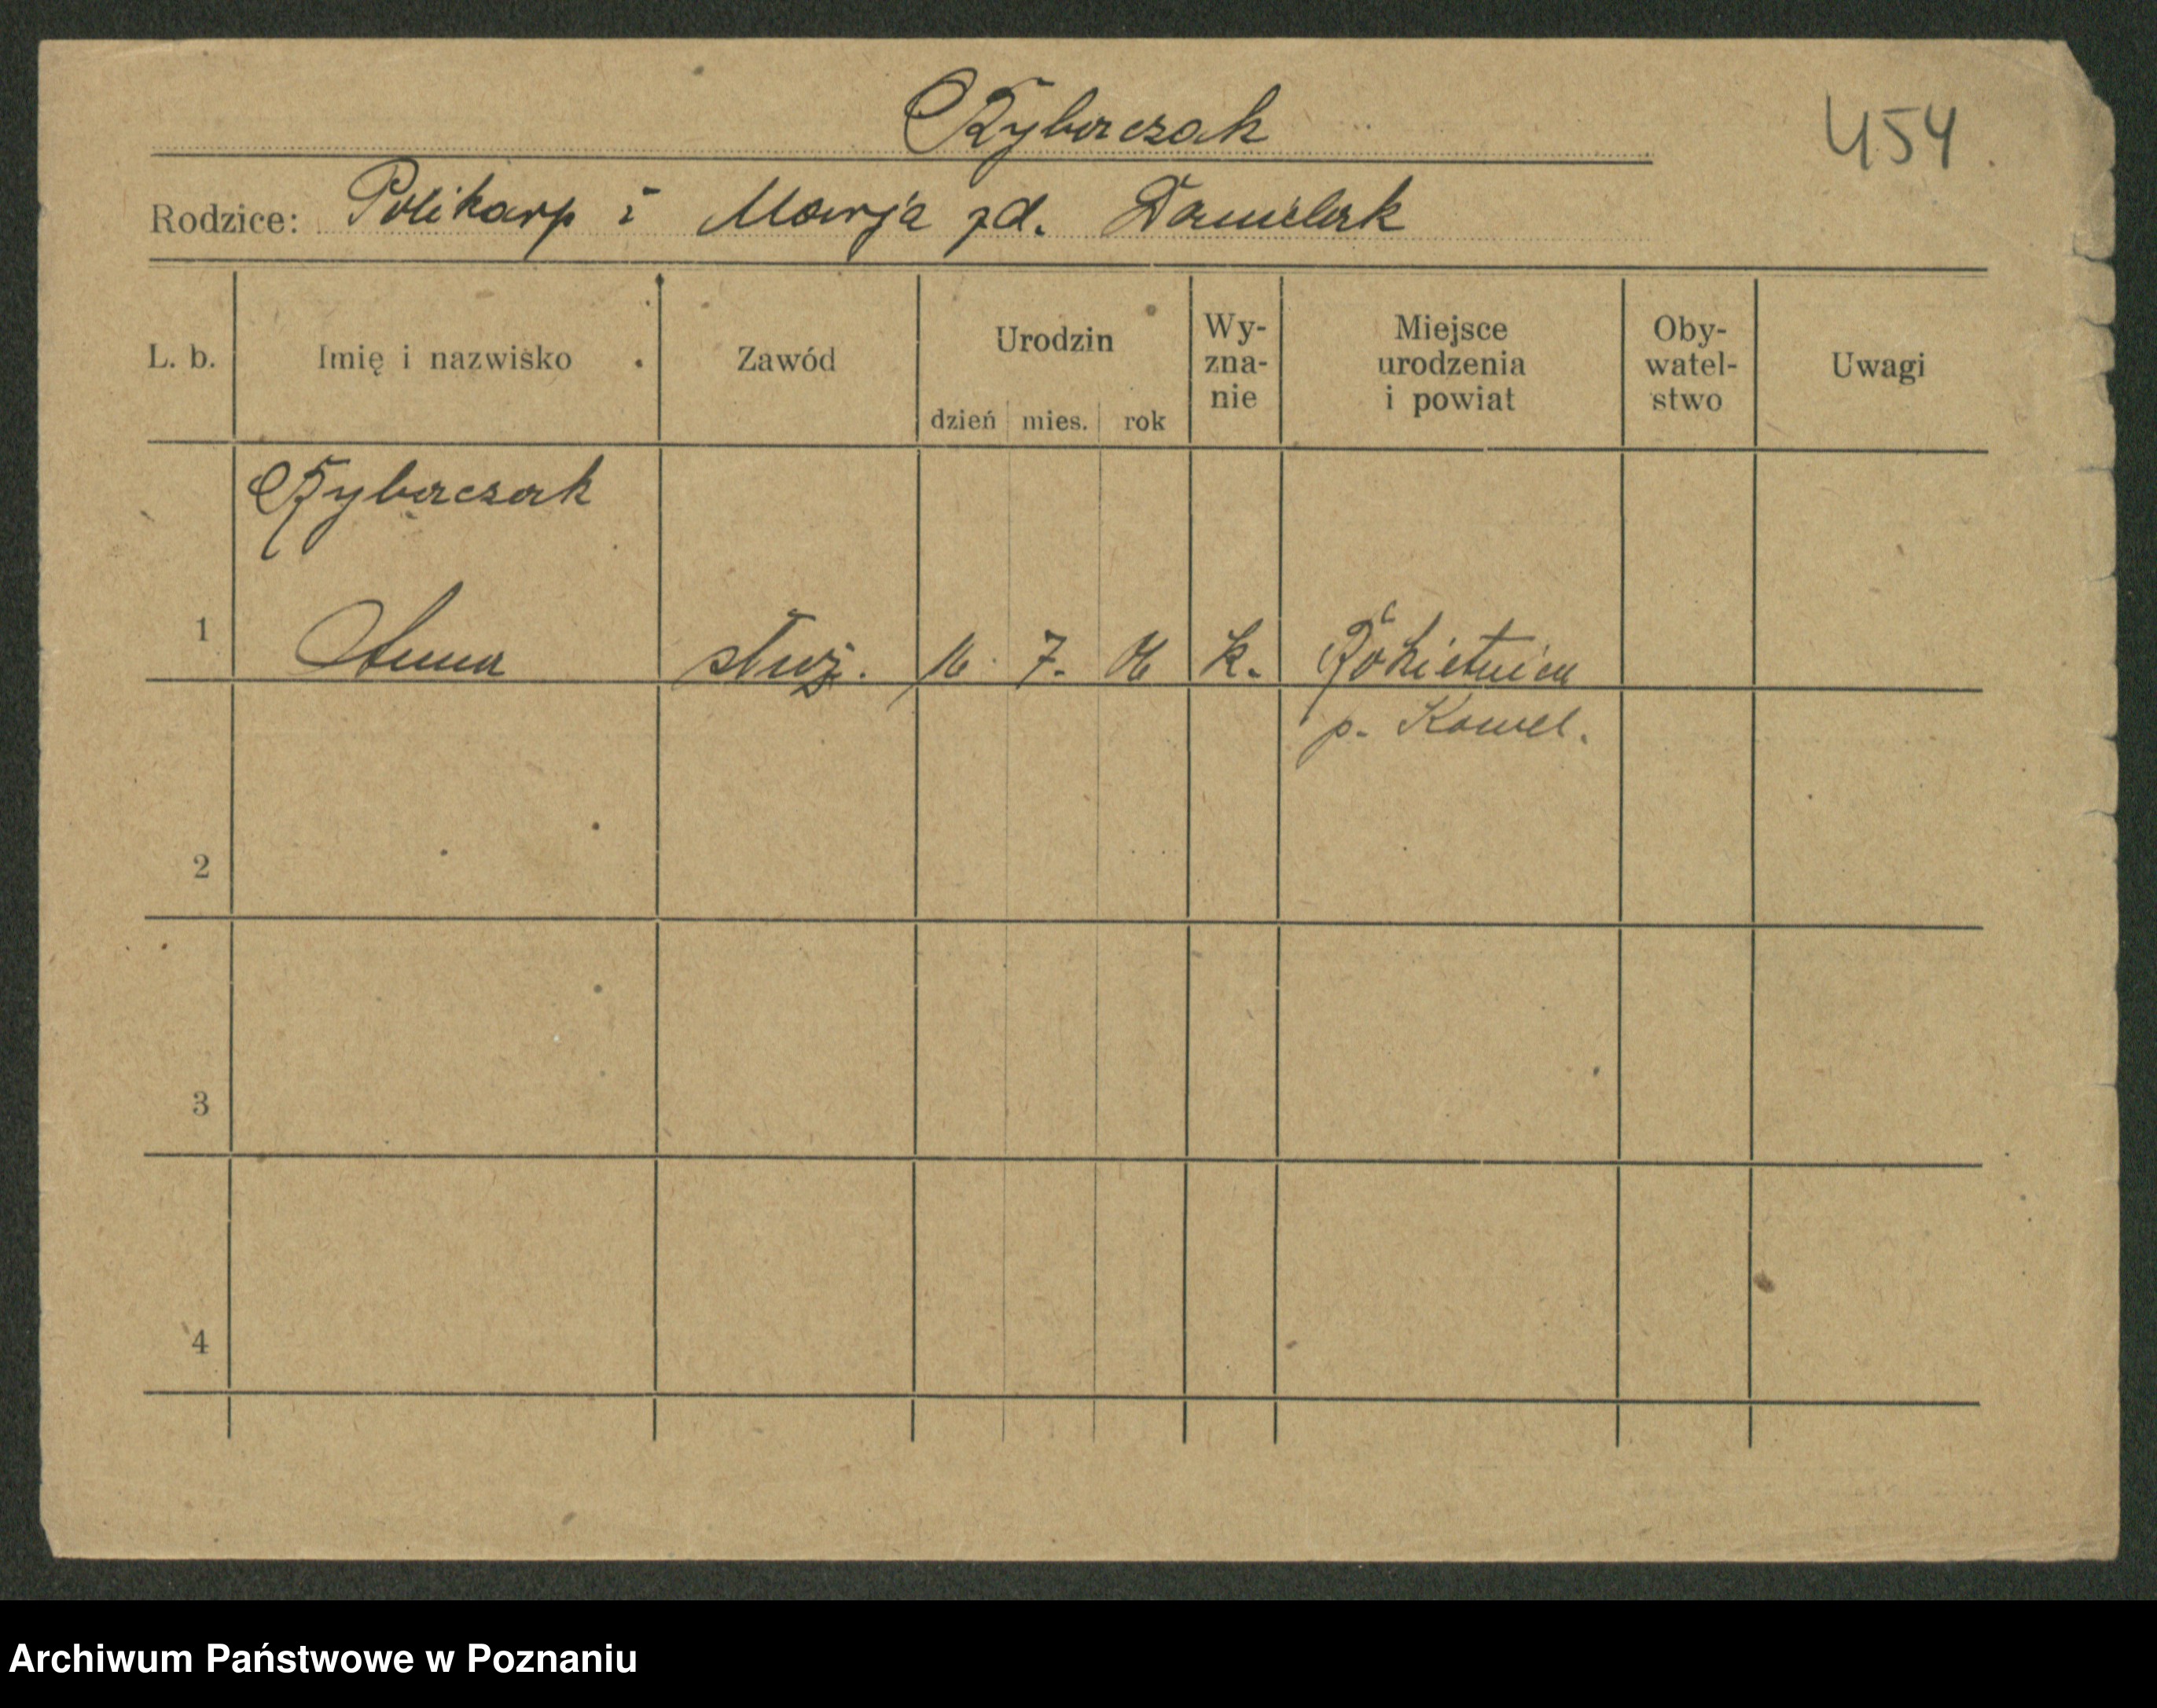 Rybarczak
454
Rodzice: Polikarp i Marja zd. Danielak
L. b. Imię i nazwisko Zawód Urodzin dzień mies. rok Wy-zna-nie Miejsce urodzenia i powiat Oby-watel-stwo Uwagi
Rybarczak
1 Anna służ. 16. 7. 06 k. Rokietnica
p. Kowel.
2
3
4
Archiwum Państwowe w Poznaniu